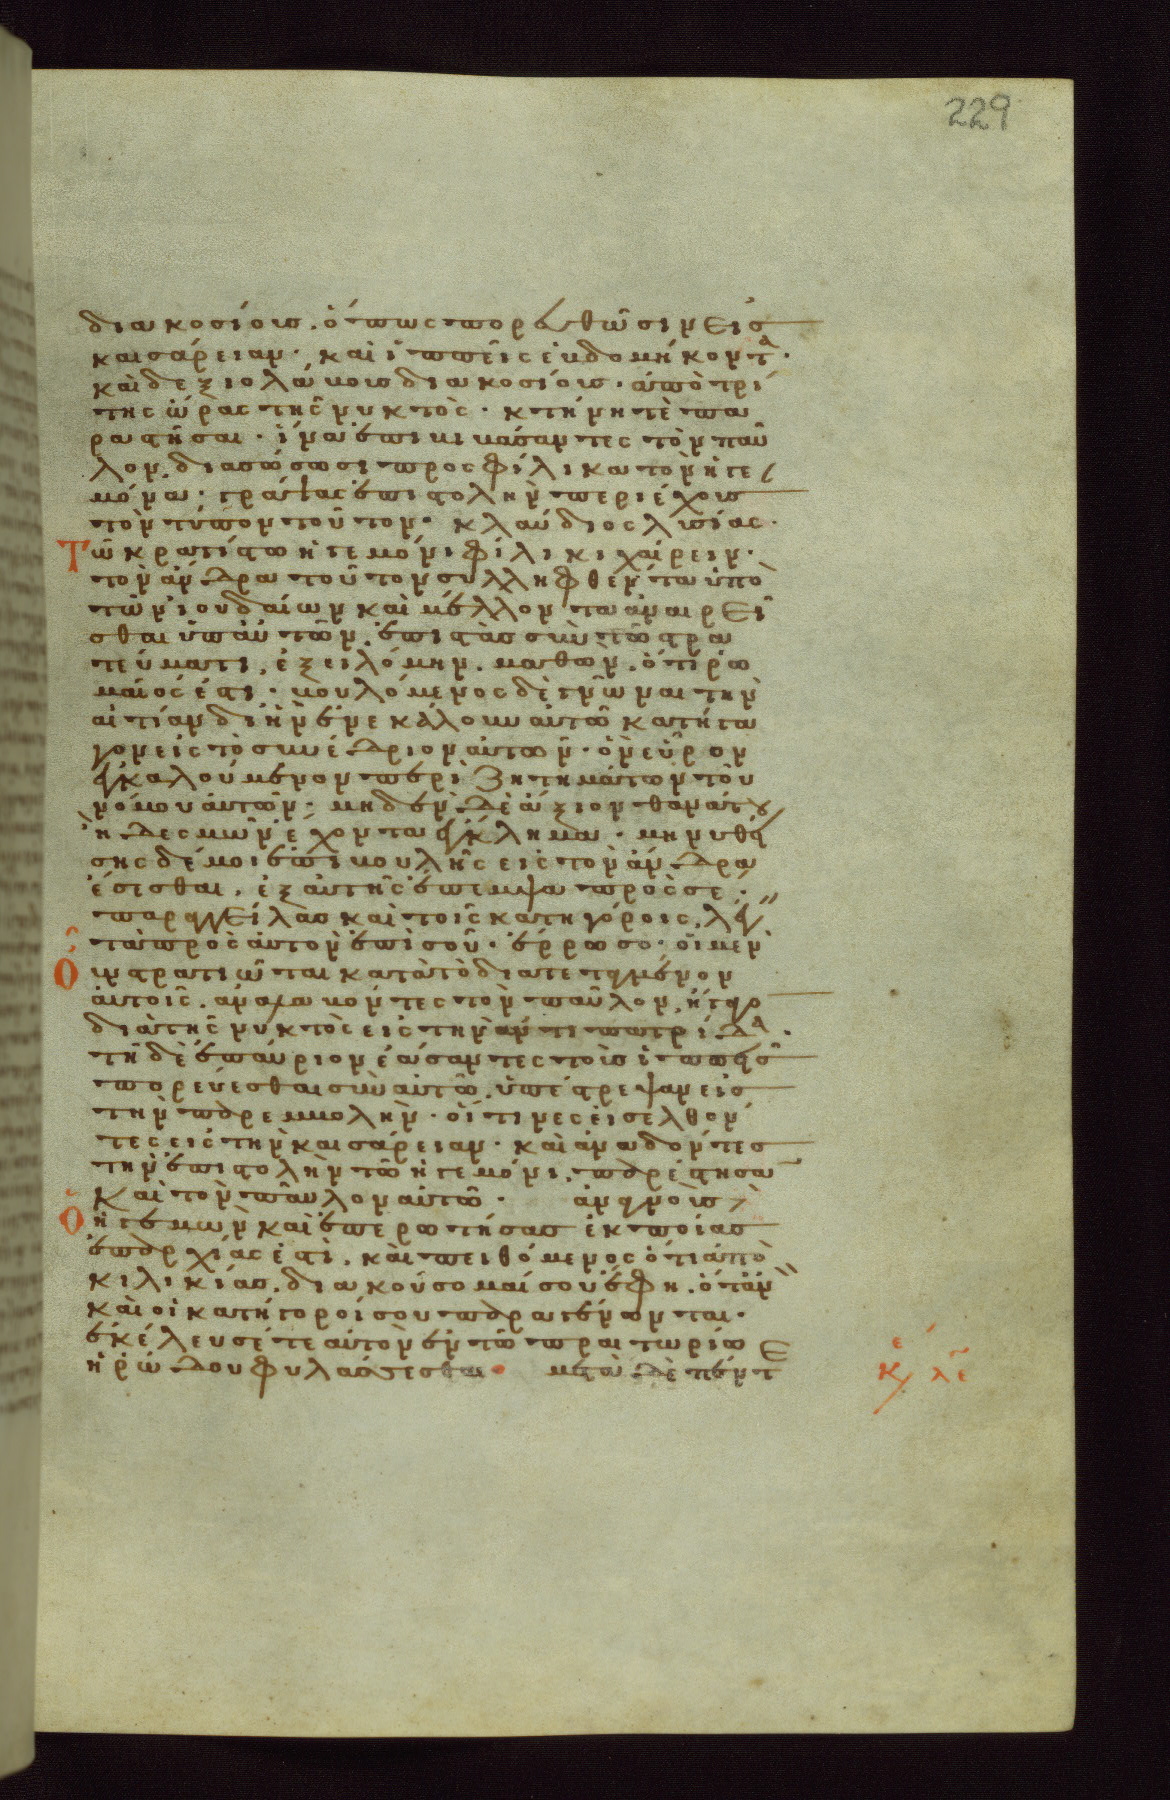 229
διακοσίους. ὅπως πορευθῶσιν εἰς
καισάρειαν. καὶ ἱππεῖς ἑβδομήκοντα.
καὶ δεξιολάβους διακοσίους. ἀπὸ τρί
της ὥρας τῆς νυκτὸς. κτήνη τὲ πα
ραστῆσαι. ἵνα ἐπιβιβάσαντες τὸν παῦ
λον, διασώσωσι προς φίλικα τὸν ἡγε
μόνα. γράψας ἐπιστολὴν περιέχουσ
τὸν τύπον τοῦτον. κλαύδιος λυσίας.
Τῶ κρατίστω ἡγεμόνι φίλικι χαίρειν.
τὸν ἄνδρα τοῦτον συλληφθεντα ὑπὸ
τῶν ἰουδαίων καὶ μέλλοντα ἀναιρεῖ
σθαι ὑπ αὐτῶν, ἐπιστὰσ σὺν τῶ στρα
τεύματι, ἐξειλόμην. μαθὼν, ὅτι ρω
μαῖός ἐστι. βουλόμενος δὲ γνῶναι τὴν
αἰτίαν δι ἣν ἐνεκάλουν αὐτῶ κατήγα
γον εἰς τὸ συνέδριον αὐτῶν. ὃν εὗρον
ἐγκαλούμενον περὶ ζητημάτων τοῦ
νόμου αὐτῶν. μηδὲν δὲ ἄξιον θανάτου
ἢ δεσμῶν ἔχοντα ἔγκλημα. μηνυθεί
σης δέ μοι ἐπιβουλῆς εἰς τὸν ἄνδρα
ἔσεσθαι, ἐξ αὐτῆς ἔπεμψα πρὸς σέ.
παραγγείλας καὶ τοῖς κατηγόροις, λέγειν
τὰ πρὸς αὐτὸν ἐπὶ σοῦ. ἔρρωσο. οἱ μὲν
Ὁ υν στρατιῶται κατὰ τὸ διατεταγμένον
αὐτοῖς. ἀναλαβόντες τὸν παῦλον, ἤγαγο
διὰ τῆς νυκτὸς εἰς τὴν ἀντιπατρίδα.
τῆ δὲ ἐπαύριον ἐάσαντες τοὺς ἱππεῖς
πορεύεσθαι σὺν αὐτῶ, ὑπέστρεψαν εἰς
τὴν παρεμβολὴν. οἵτινες εἰσελθόν
τες εἰς τὴν καισάρειαν. καὶ ἀναδόντες
τὴν ἐπιστολὴν τῶ ἡγεμόνι, παρέστησα
καὶ τὸν παῦλον αὐτῶ. ἀναγνοὺς δὲ
Ὁ ἡγεμὼν καὶ ἐπερωτήσας ἐκ ποίας
ἐπαρχίας ἐστὶ, καὶ πειθόμενος ὅτι ἀπὸ
κιλικίας, διακούσομαί σου ἔφη. ὅταν
καὶ οἱ κατήγοροί σου παραγένωνται.
ἐκέλευσέ τε αὐτὸν ἐν τῶ πραιτωρίω
ἡρώδου φυλάσσεσθαι. μετὰ δὲ πέντε
κε λε